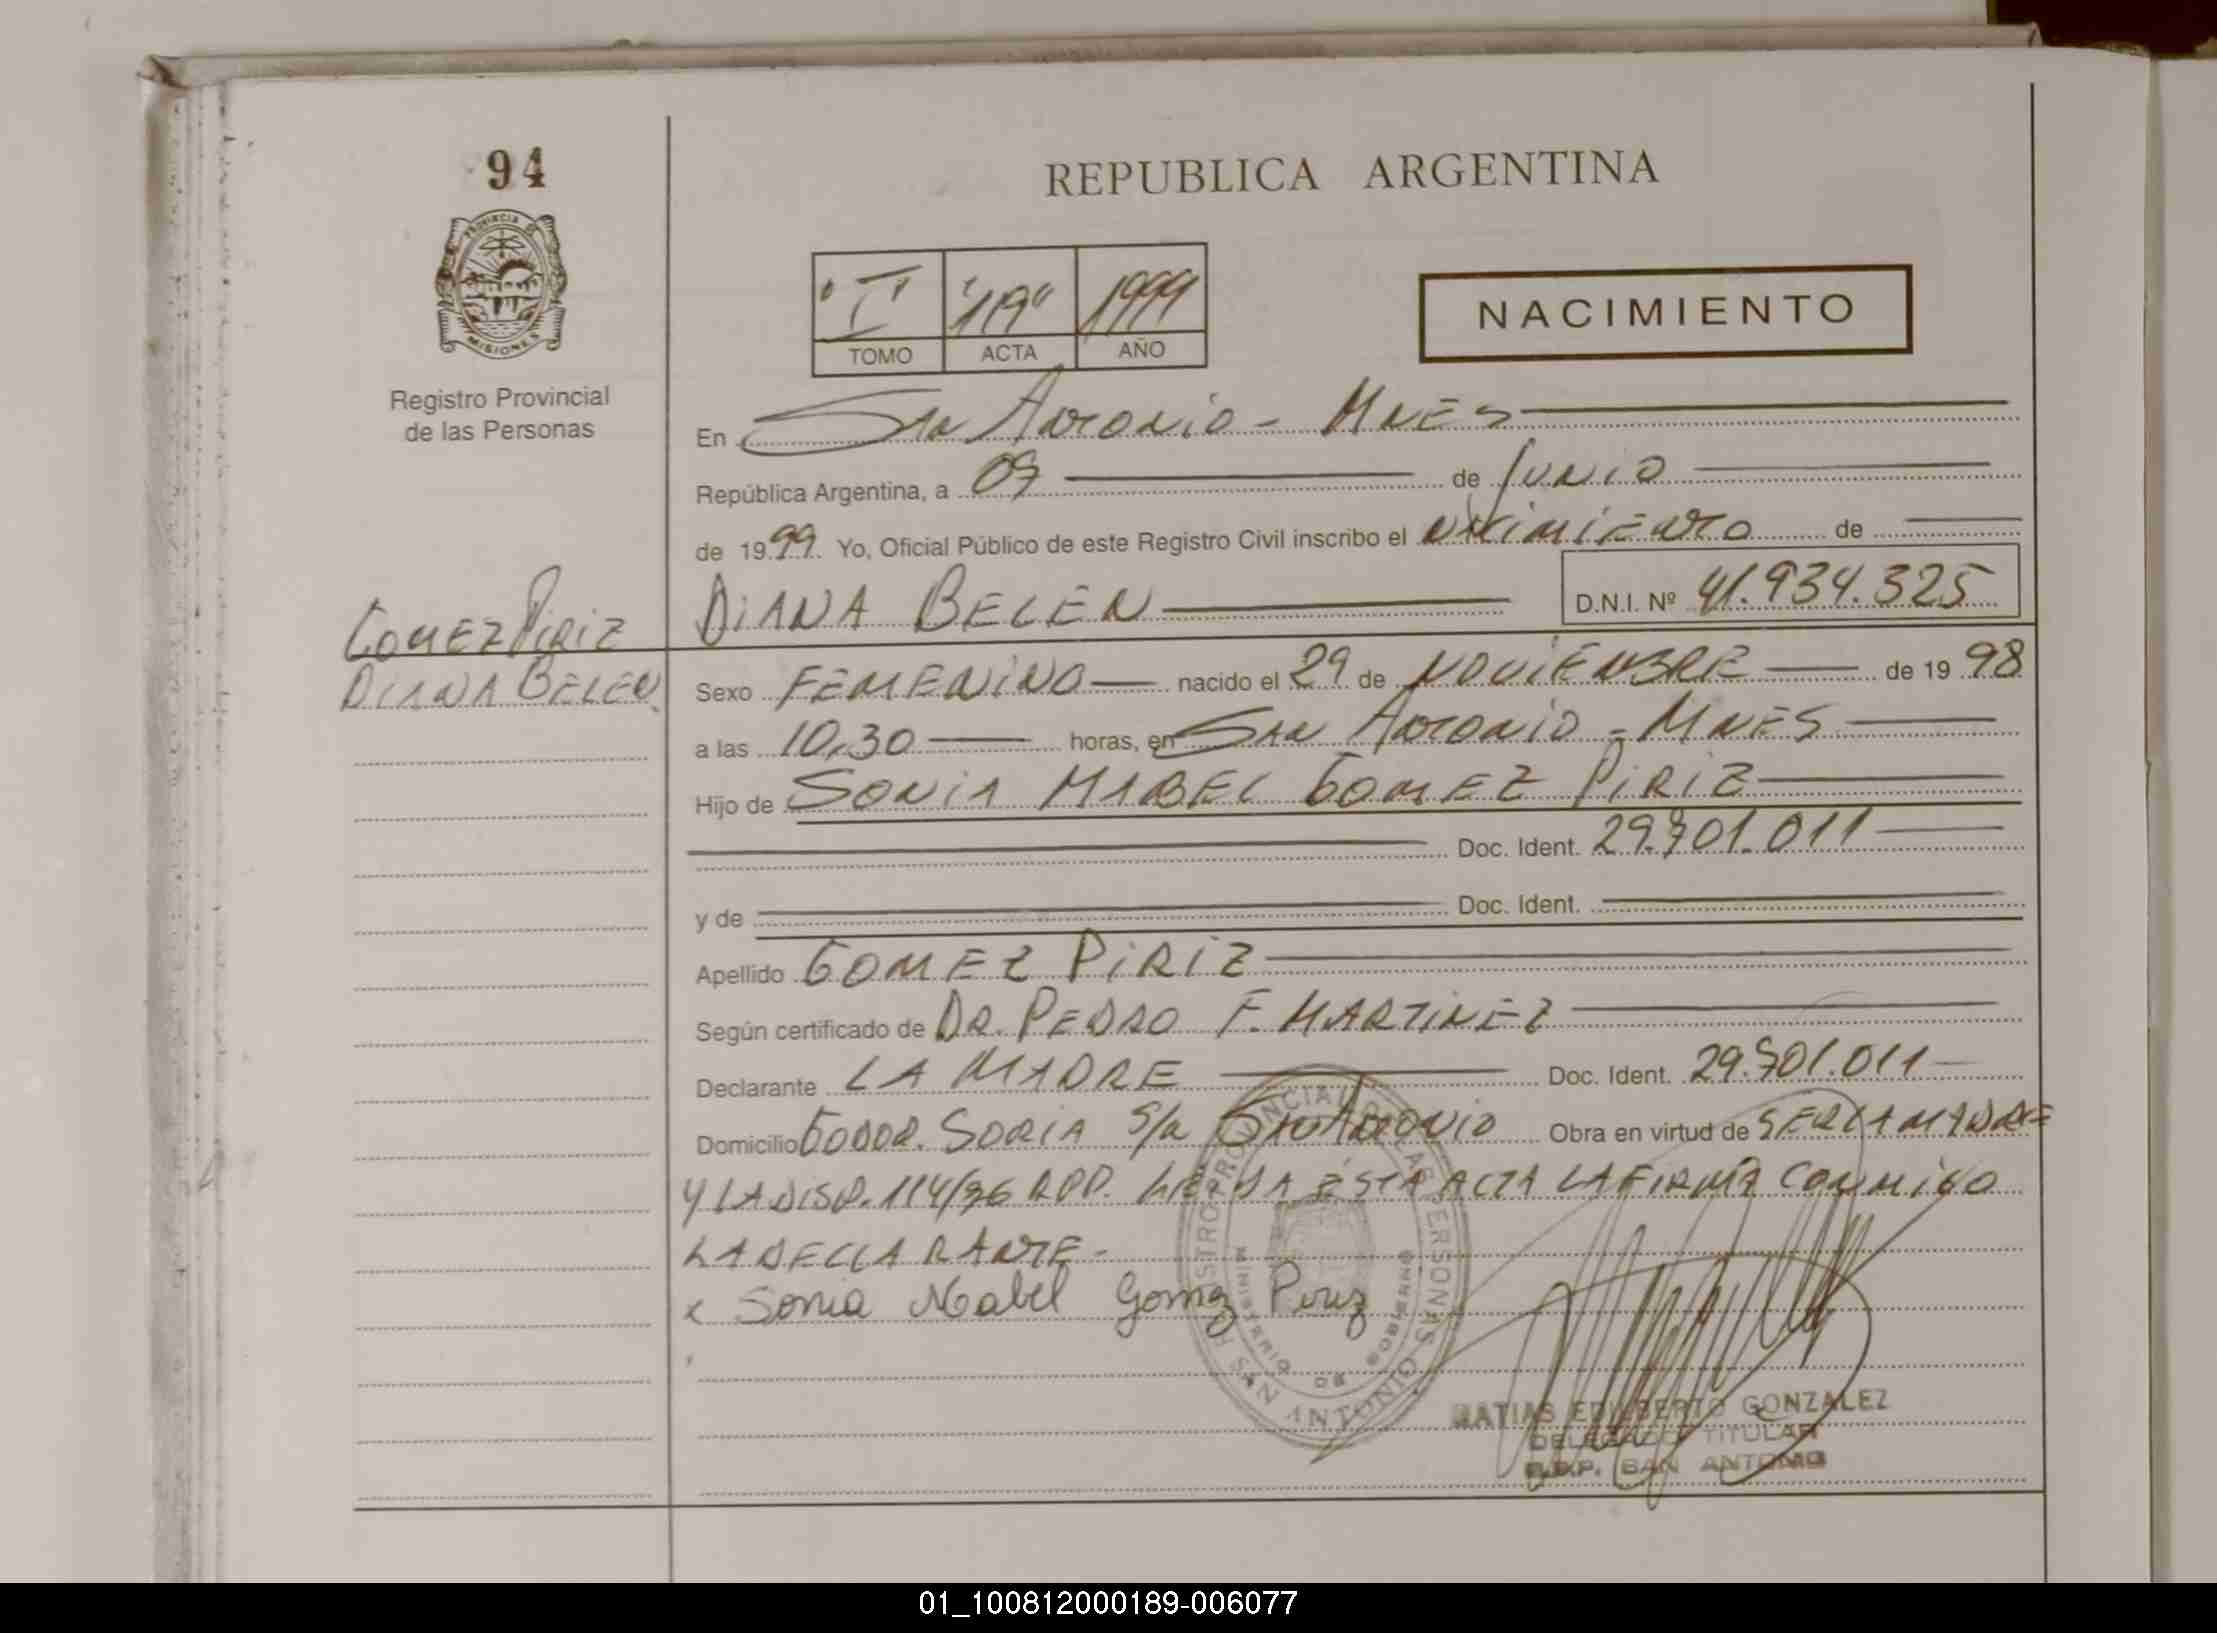 94
PROVINCIA DE
MISIONES
Registro Provincial
de las Personas
REPUBLICA ARGENTINA
"I" "119" 1999
TOMO ACTA AÑO
NACIMIENTO
En San Antonio - Mnes
República Argentina, a 07 de Junio
de 1999. Yo, Oficial Público de este Registro Civil inscribo el nacimiento de
DIANA BELEN D.N.I. Nº 41.934.325
GOMEZ PIRIZ
DIANA BELEN
Sexo FEMENINO nacido el 29 de NOVIENBRE de 1998
a las 10,30 horas, en San Antonio - MNES
Hijo de SONIA MABEL GOMEZ PIRIZ
Doc. Ident. 29.701.011
y de Doc. Ident.
Apellido GOMEZ PIRIZ
Según certificado de DR. PEDRO F. MARTINEZ
Declarante LA MADRE Doc. Ident. 29.701.011
Domicilio GODOR. SORIA S/n San Antonio Obra en virtud de SER LA MADRE
Y LA DISP. 114/96 RPP. LEIDA ESTA ACTA LA FIRMA CONMIGO
LA DECLARANTE.-
x Sonia Mabel Gomez Piriz
REGISTRO PROVINCIAL DE LAS PERSONAS
MINISTERIO DE GOBIERNO
SAN ANTONIO
MATIAS EDILBERTO GONZALEZ
DELEGADO TITULAR
R.P.P. SAN ANTONIO
01_100812000189-006077